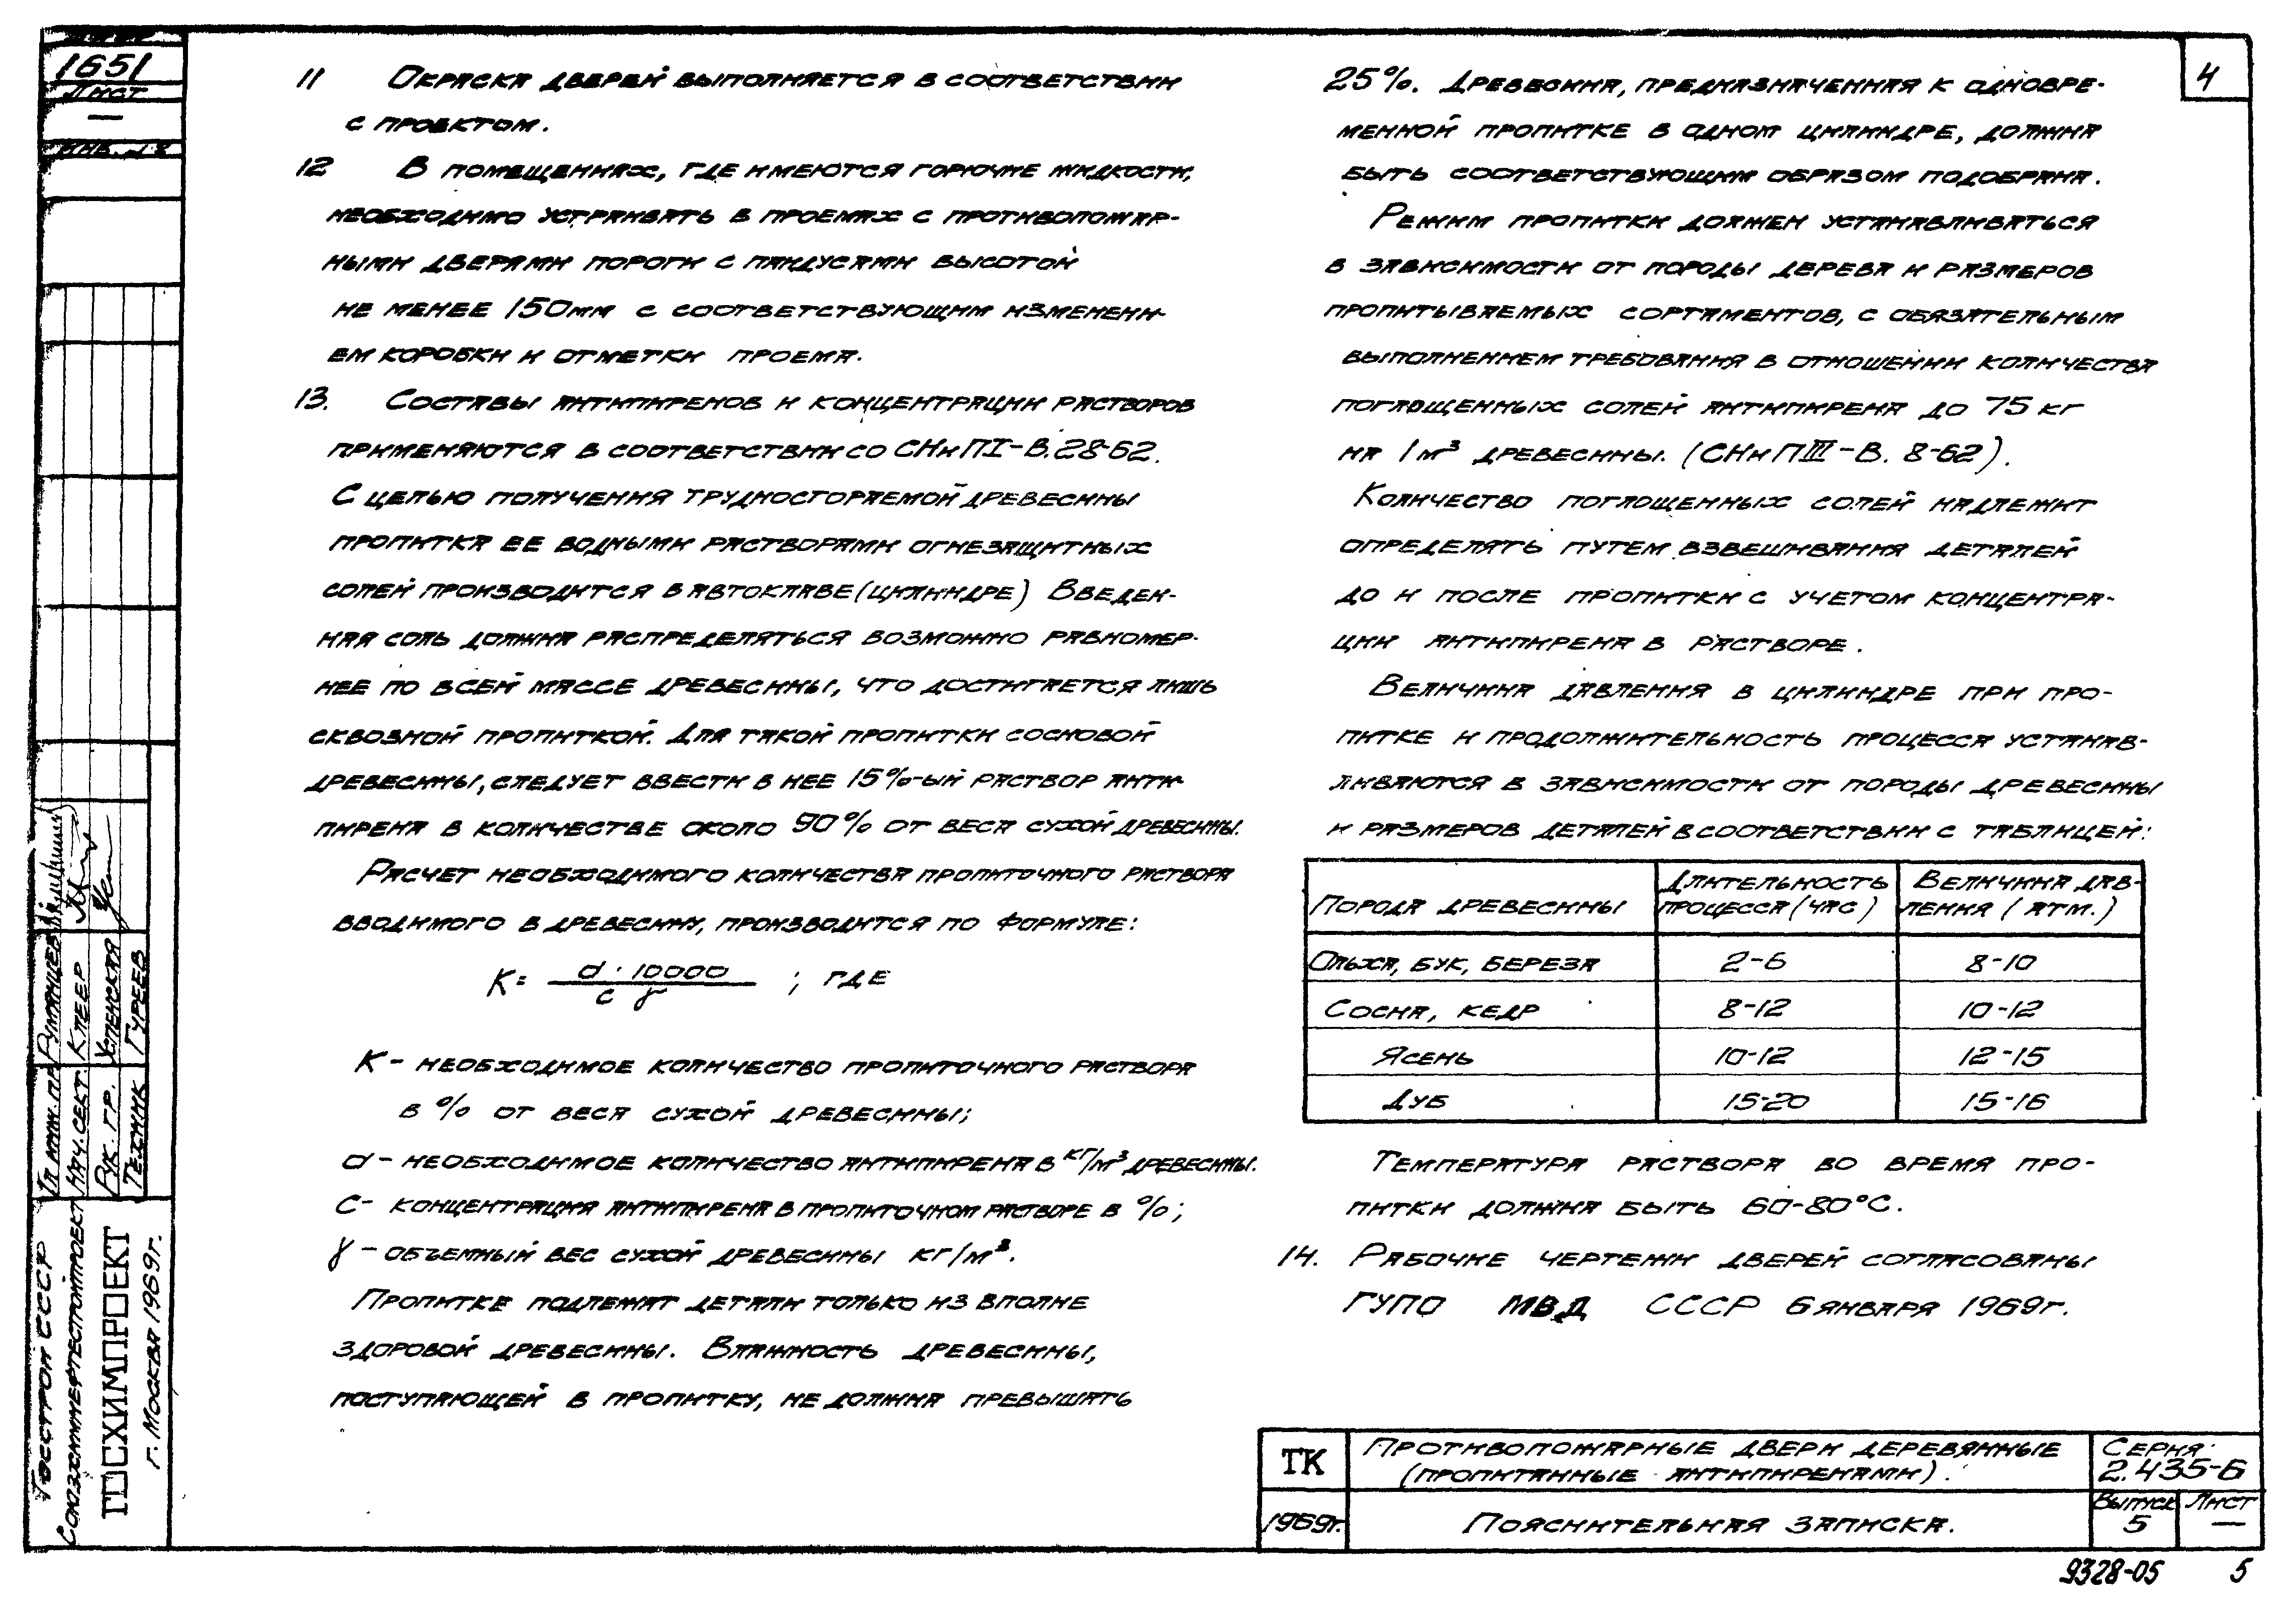 1651
Лист
—
4
11 Окраска дверей выполняется в соответствии
с проектом.
12 В помещениях, где имеются горючие жидкости,
необходимо устраивать в проемах с противопожар-
ными дверями пороги с пандусами высотой
не менее 150мм с соответствующим изменени-
ем коробки и отметки проема.
13. Составы антипиренов и концентрации растворов
применяются в соответствии со СНиП I-В.28-62.
С целью получения трудносгораемой древесины
пропитка ее водными растворами огнезащитных
солей производится в автоклаве (цилиндре) Введен-
ная соль должна распределяться возможно равномер-
нее по всей массе древесины, что достигается лишь
сквозной пропиткой. Для такой пропитки сосновой
древесины, следует ввести в нее 15%-ый раствор анти-
пирена в количестве около 90% от веса сухой древесины.
Расчет необходимого количества пропиточного раствора
вводимого в древесину, производится по формуле:
К= d · 10000 / c γ ; где
К- необходимое количество пропиточного раствора
в % от веса сухой древесины;
d- необходимое количество антипирена в кг/м³ древесины.
С- концентрация антипирена в пропиточном растворе в %;
γ- объемный вес сухой древесины кг/м³.
Пропитке подлежат детали только из вполне
здоровой древесины. Влажность древесины,
поступающей в пропитку, не должна превышать
25%. Древесина, предназначенная к одновре-
менной пропитке в одном цилиндре, должна
быть соответствующим образом подобрана.
Режим пропитки должен устанавливаться
в зависимости от породы дерева и размеров
пропитываемых сортаментов, с обязательным
выполнением требования в отношении количества
поглощенных солей антипирена до 75 кг
на 1м³ древесины. (СНиП III-В. 8-62).
Количество поглощенных солей надлежит
определять путем взвешивания деталей
до и после пропитки с учетом концентра-
ции антипирена в растворе.
Величина давления в цилиндре при про-
питке и продолжительность процесса устанав-
ливаются в зависимости от породы древесины
и размеров деталей в соответствии с таблицей:
Порода древесины Длительность процесса (час) Величина дав-ления (атм.)
Ольха, бук, береза 2-6 8-10
Сосна, кедр 8-12 10-12
Ясень 10-12 12-15
Дуб 15-20 15-16
Температура раствора во время про-
питки должна быть 60-80°С.
14. Рабочие чертежи дверей согласованы
ГУПО МВД СССР 6 января 1969г.
Гл. инж. пр. Румянцев
Нач. сект. Клеер
Рук. гр. Успенская
Техник Гуреев
Госстрой СССР
Союзхимнефтестройпроект
ГОСХИМПРОЕКТ
г. Москва 1969г.
ТК
1969г.
Противопожарные двери деревянные
(пропитанные антипиренами).
Пояснительная записка.
Серия
2.435-6
Выпуск Лист
5 —
9328-05 5